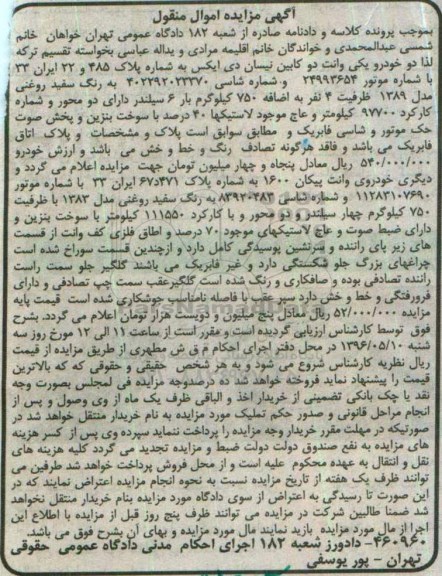 آگهی مزایده اموال منقول
بموجب پرونده کلاسه و دادنامه صادره از شعبه ۱۸۲ دادگاه عمومی تهران خواهان خانم
شمسی عبدالمحمدی و خواندگان خانم اقلیمه مرادی و یداله عباسی بخواسته تقسیم ترکه
لذا دو خودرو یکی وانت دو کابین نیسان دی ایکس به شماره پلاک ۴۸۵ و ۲۲ ایران ۳۳
با شماره موتور ۲۴۹۹۳۶۵۴ و شماره شاسی ۴۰۲۲۹۲۰۲۳۳۷۰ به رنگ سفید روغنی
مدل ۱۳۸۹ ظرفیت ۴ نفر به اضافه ۷۵۰ کیلوگرم بار ۶ سیلندر دارای دو محور و شماره
کارکرد ۹۷۷۰۰ کیلومتر و عاج موجود لاستیکها ۴۰ درصد با سوخت بنزین و پخش صوت
حک موتور و شاسی فابریک و مطابق سوابق است پلاک و مشخصات و پلاک اتاق
فابریک می باشد و فاقد هرگونه تصادف رنگ و خط و خش می باشد و ارزش خودرو
۵۴۰/۰۰۰/۰۰۰ ریال معادل پنجاه و چهار میلیون تومان جهت مزایده اعلام می گردد و
دیگری خودروی وانت پیکان ۱۶۰۰ به شماره پلاک ۴۷۱د۶۷ ایران ۳۳ با شماره موتور
۱۱۲۸۳۱۰۷۶۹۰ و شماره شاسی ۸۳۹۲۰۴۸۳ به رنگ سفید روغنی مدل ۱۳۸۳ با ظرفیت
۷۵۰ کیلوگرم چهار سیلندر و دو محور و با کارکرد ۱۱۱۵۵۰ کیلومتر با سوخت بنزین و
دارای ضبط صوت و عاج لاستیکهای موجود ۷۰ درصد و اطاق فلزی کف وانت از قسمت
های زیر پای راننده و سرنشین پوسیدگی کامل دارد و ازچندین قسمت سوراخ شده است
چراغهای بزرگ جلو شکستگی دارد و غیر فابریک می باشند گلگیر جلو سمت راست
راننده تصادفی بوده و صافکاری و رنگ شده است گلگیرعقب سمت چپ تصادفی و دارای
فرورفتگی و خط و خش دارد سپر عقب با فاصله نامناسب جوشکاری شده است قیمت پایه
مزایده ۵۲/۰۰۰/۰۰۰ ریال معادل پنج میلیون و دویست هزار تومان اعلام می گردد. بشرح
فوق توسط کارشناس ارزیابی گردیده است و مقرر است از ساعت ۱۱ الی ۱۲ مورخ روز سه
شنبه ۱۳۹۶/۰۵/۱۰ در محل دفتر اجرای احکام م ق ش مطهری از طریق مزایده از قیمت
ریال نظریه کارشناس شروع می شود و به هر شخص حقیقی و حقوقی که که بالاترین
قیمت را پیشنهاد نماید فروخته خواهد شد ده درصدوجه مزایده فی لمجلس بصورت وجه
نقد یا چک بانکی تضمینی از خریدار اخذ و الباقی ظرف یک ماه از وی وصول و پس از
انجام مراحل قانونی و صدور حکم تملیک مورد مزایده به نام خریدار منتقل خواهد شد در
صورتیکه در مهلت مقرر خریدار وجه مزایده را پرداخت ننماید سپرده وی پس از کسر هزینه
های مزایده به نفع صندوق دولت دولت ضبط و مزایده تجدید می گردد کلیه هزینه های
نقل و انتقال به عهده محکوم علیه است و از محل فروش پرداخت خواهد شد طرفین می
توانند ظرف یک هفته از تاریخ مزایده نسبت به نحوه انجام مزایده اعتراض نمایند که در
این صورت تا رسیدگی به اعتراض از سوی دادگاه مورد مزایده بنام خریدار منتقل نخواهد
شد ضمنا طالبین شرکت در مزایده می توانند ظرف پنج روز قبل از مزایده با اطلاع این
اجرا از مال مورد مزایده بازید نمایند مال مورد مزایده و بهای آن بشرح فوق می باشد.
۴۶۰۹۶۰- دادورز شعبه ۱۸۲ اجرای احکام مدنی دادگاه عمومی حقوقی
تهران - پور یوسفی